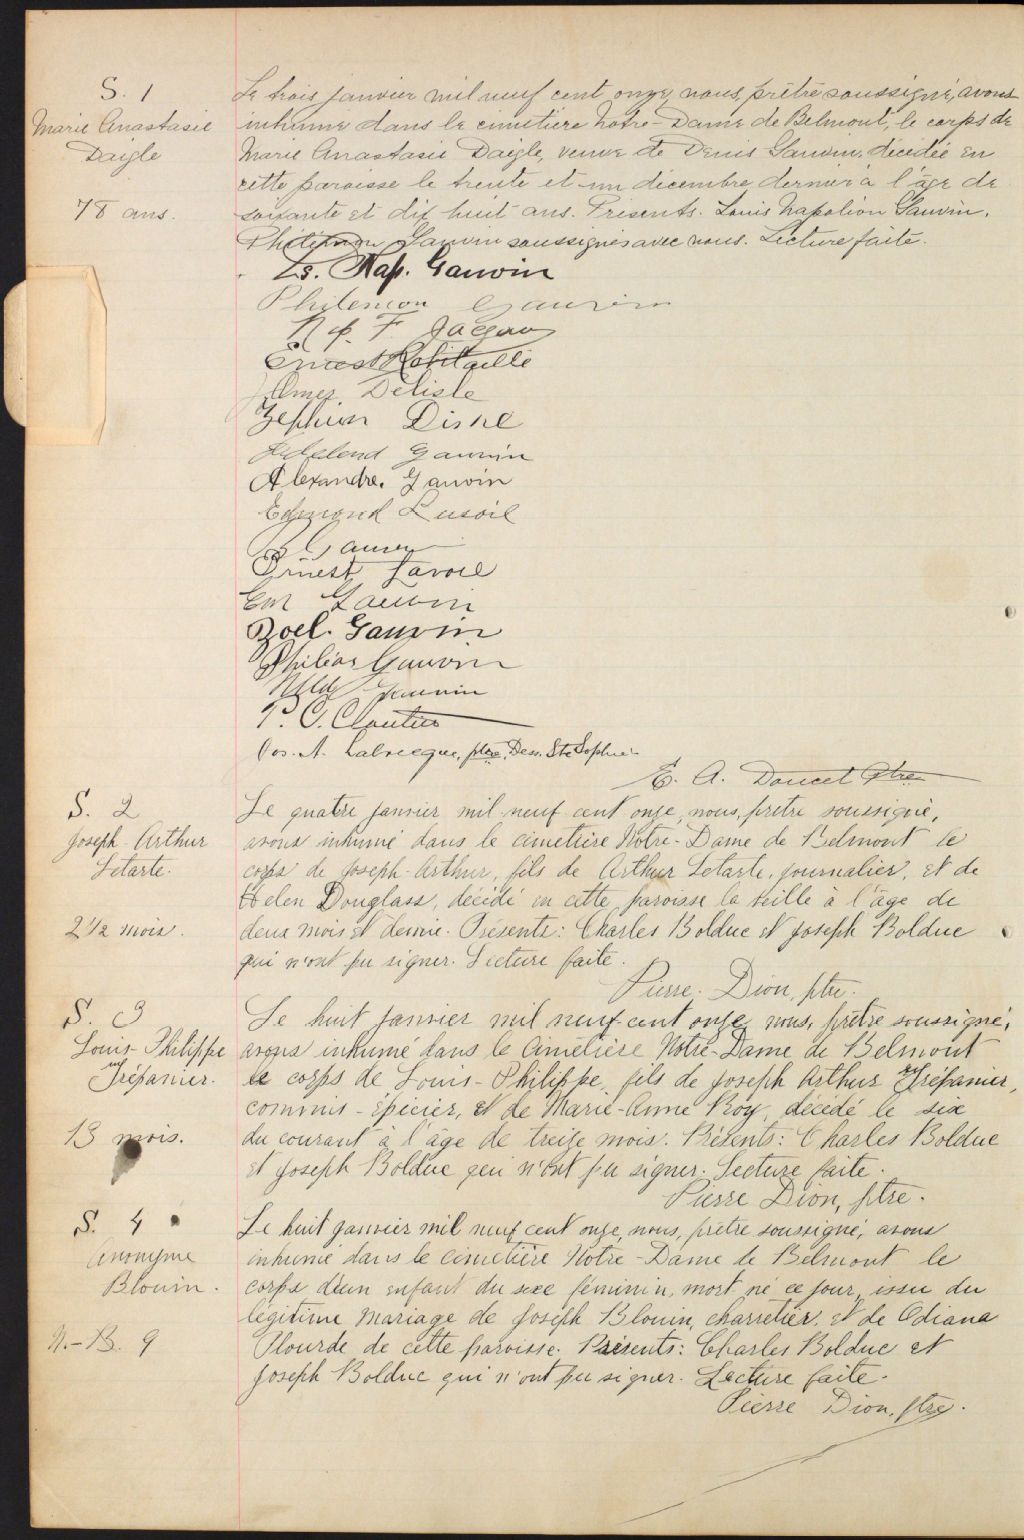 S. 1
Marie Anastasie
Daigle
78 ans.
Le trois janvier mil neuf cent onze, nous, prêtre soussigné, avons
inhumé dans le cimetière Notre-Dame de Belmont, le corps de
Marie Anastasie Daigle, veuve de Denis Gauvin, décédée en
cette paroisse le trente et un décembre dernier à l'âge de
soixante et dix huit ans. Présents. Louis Napoléon Gauvin.
Philémon Gauvin soussignés avec nous. Lecture faite.
Ls. Nap. Gauvin
Philemon Gauvin
Nap. F
Ernest Robitaille
Delisle
Zephirin
Gauvin
Alexandre Gauvin
Edmond
Gauvin
Ernest Lavoie
Gauvin
Zoel. Gauvin
Philias Gauvin
Gauvin
P. O. Cloutier
Jos. A. Labrecque, ptre, Dess. Ste Sophie
E. A. Doucet Ptre
S. 2
Joseph Arthur
Letarte.
2 1/2 mois.
Le quatre janvier mil neuf cent onze, nous, prêtre soussigné,
avons inhumé dans le cimetière Notre-Dame de Belmont le
corps de Joseph-Arthur, fils de Arthur Letarte, journalier, et de
Helen Douglass, décédé en cette paroisse la veille à l'âge de
deux mois et demie. Présents: Charles Bolduc et Joseph Bolduc
qui n'ont pu signer. Lecture faite.
Pierre. Dion, ptre.
S. 3
Louis-Philippe
Trépanier.
13 mois.
Le huit janvier mil neuf cent onze nous, prêtre soussigné,
avons inhumé dans le cimetière Notre-Dame de Belmont
le corps de Louis-Philippe, fils de Joseph Arthur Trépanier,
commis-épicier, et de Marie-Anne Roy, décédé le six
du courant à l'âge de treize mois. Présents: Charles Bolduc
et Joseph Bolduc qui n'ont pu signer. Lecture faite.
Pierre Dion, ptre.
S. 4
Anonyme
Blouin.
N.-B. 9
Le huit janvier mil neuf cent onze, nous, prêtre soussigné, avons
inhumé dans le cimetière Notre-Dame de Belmont le
corps d'un enfant du sexe féminin, mort né ce jour, issu du
légitime mariage de Joseph Blouin, charretier, et de Odiana
Plourde de cette paroisse. Présents: Charles Bolduc et
Joseph Bolduc qui n'ont pu signer. Lecture faite.
Pierre Dion, ptre.